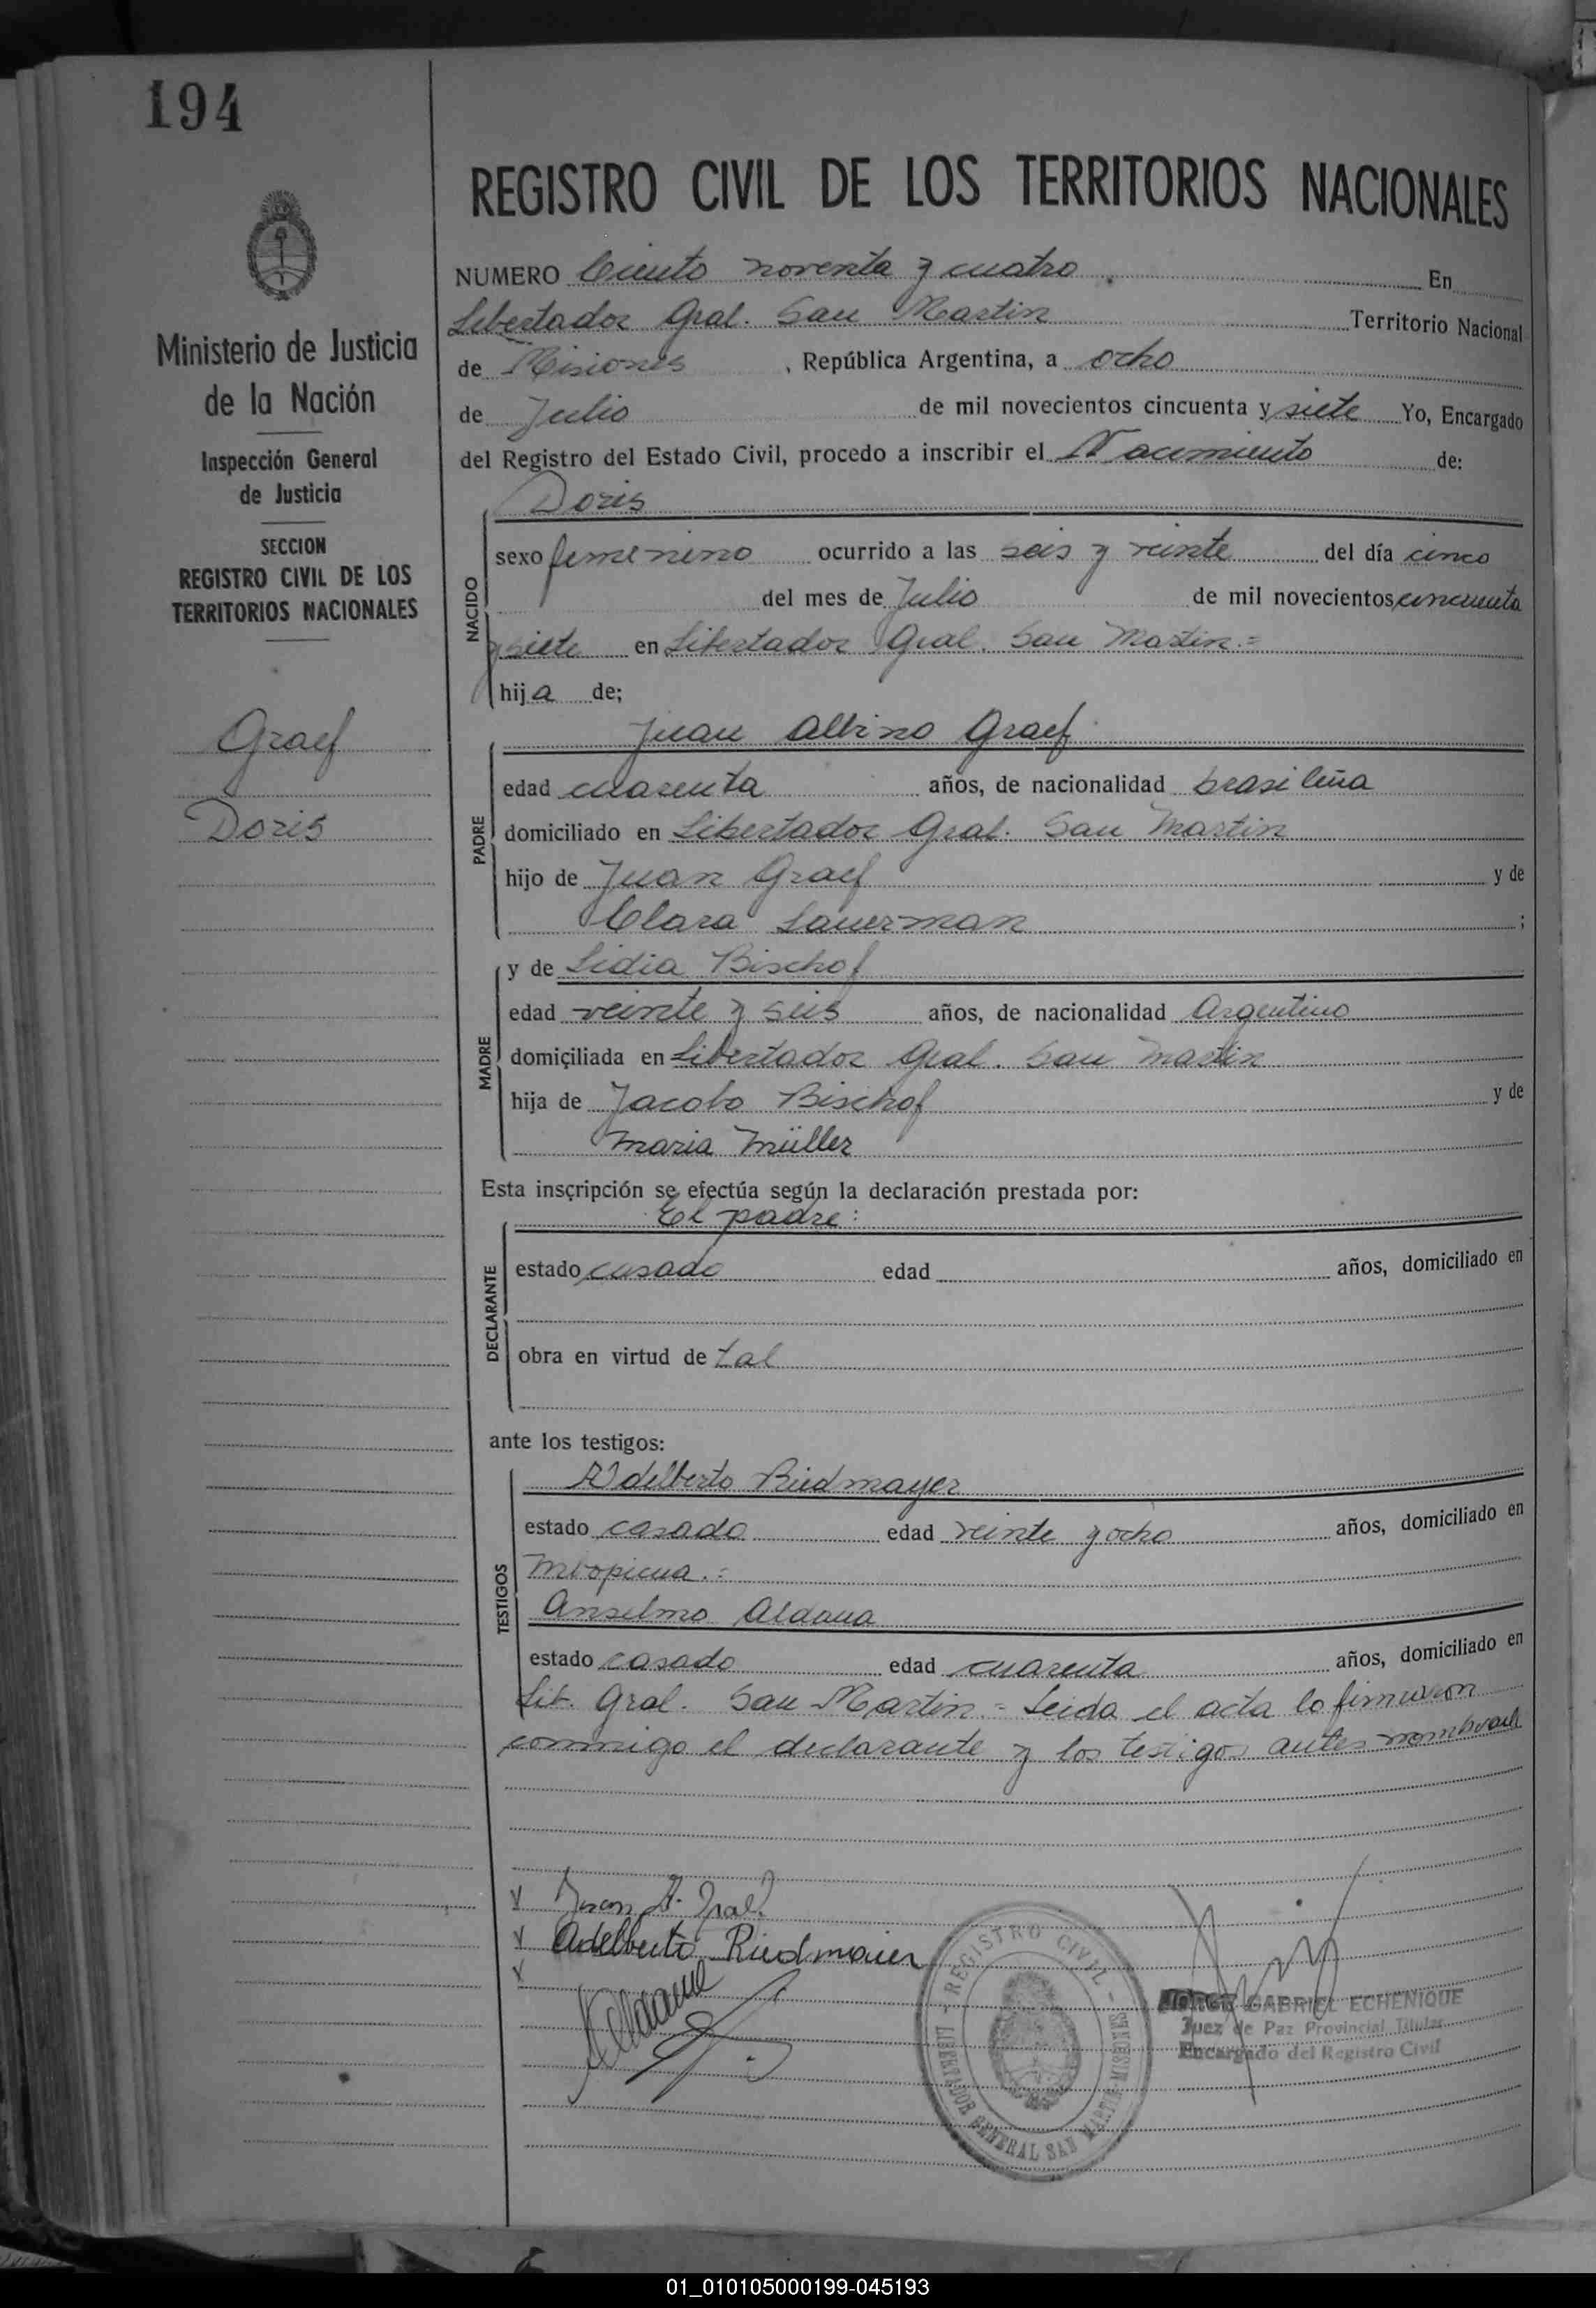 194
REGISTRO CIVIL DE LOS TERRITORIOS NACIONALES
Ministerio de Justicia
de la Nación
Inspección General
de Justicia
SECCION
REGISTRO CIVIL DE LOS
TERRITORIOS NACIONALES
Graef
Doris
NUMERO Ciento noventa y cuatro En
Libertador Gral. San Martin Territorio Nacional
de Misiones, República Argentina, a ocho
de Julio de mil novecientos cincuenta y siete Yo, Encargado
del Registro del Estado Civil, procedo a inscribir el Nacimiento de:
Doris
NACIDO
sexo femenino ocurrido a las seis y veinte del día cinco
del mes de Julio de mil novecientos cincuenta
y siete en Libertador Gral. San Martin.=
hija de;
Juan Albino Graef
PADRE
edad cuarenta años, de nacionalidad brasileña
domiciliado en Libertador Gral. San Martin
hijo de Juan Graef y de
Clara Lauerman ;
MADRE
y de Lidia Bischof
edad veinte y seis años, de nacionalidad Argentino
domiciliada en Libertador Gral. San Martin
hija de Jacobo Bischof y de
Maria Müller
Esta inscripción se efectúa según la declaración prestada por:
El padre:
DECLARANTE
estado casado edad años, domiciliado en
obra en virtud de tal
ante los testigos:
TESTIGOS
Adelberto Riedmayer
estado casado edad veinte y ocho años, domiciliado en
Mbopicua.=
Anselmo Aldana
estado casado edad cuarenta años, domiciliado en
Lib. Gral. San Martin.= Leida el acta lo firmaron
conmigo el declarante y los testigos antes
Juan A. Graef
Adelberto Riedmaier
A Aldana
REGISTRO CIVIL
LIBERTADOR GENERAL SAN MARTIN MISIONES
JORGE GABRIEL ECHENIQUE
Juez de Paz Provincial Titular
Encargado del Registro Civil
01_010105000199-045193